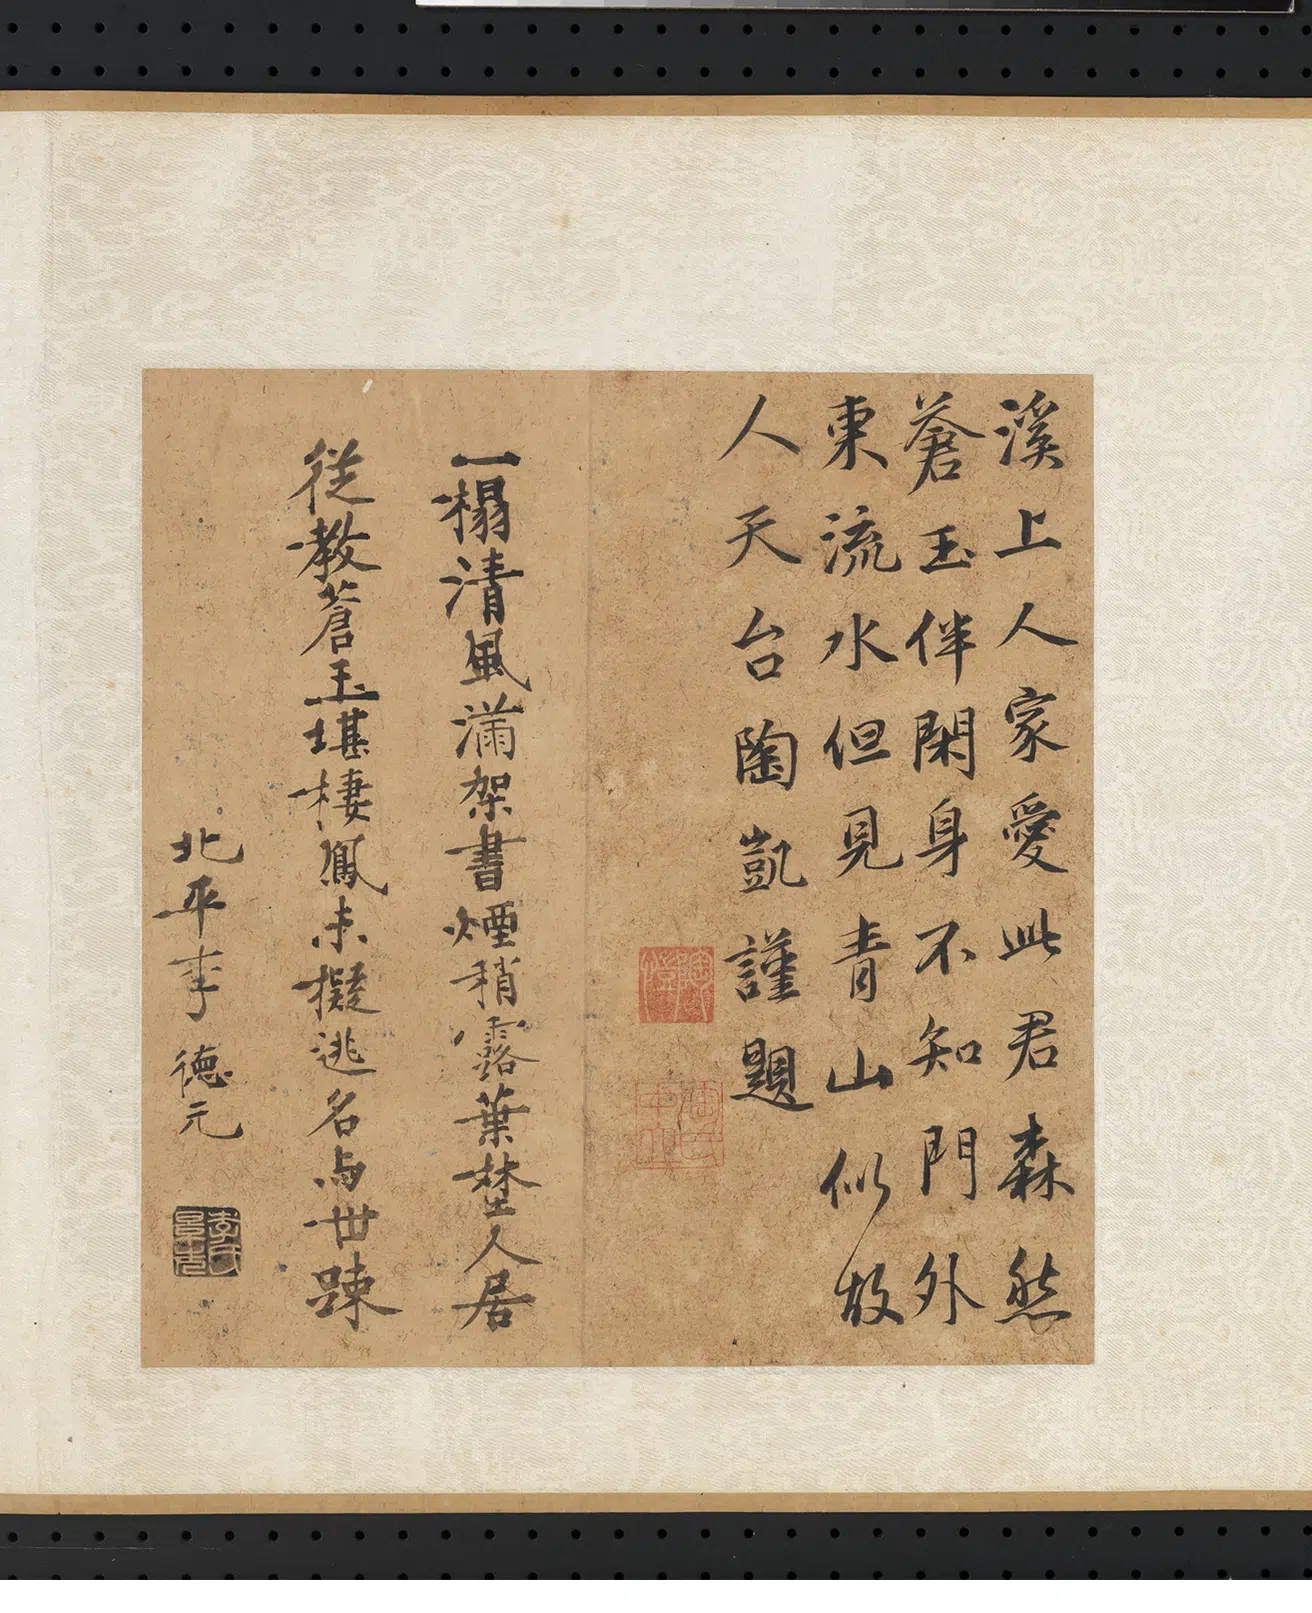 溪上人家愛此君森然
蒼玉伴閑身不知門外
東流水但見青山似故
人天台陶凱謹題
陶凱
陶氏中立
一榻清風滿架書煙稍露葉埜人居
從教蒼玉堪棲鳳未擬逃名与世踈
北平李德元
李氏